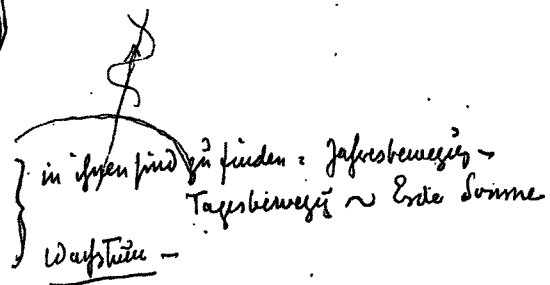 in ihnen sind zu finden: Jahresbewegung –
Tagesbewegung ~ Erde Sonne
Wachstum –